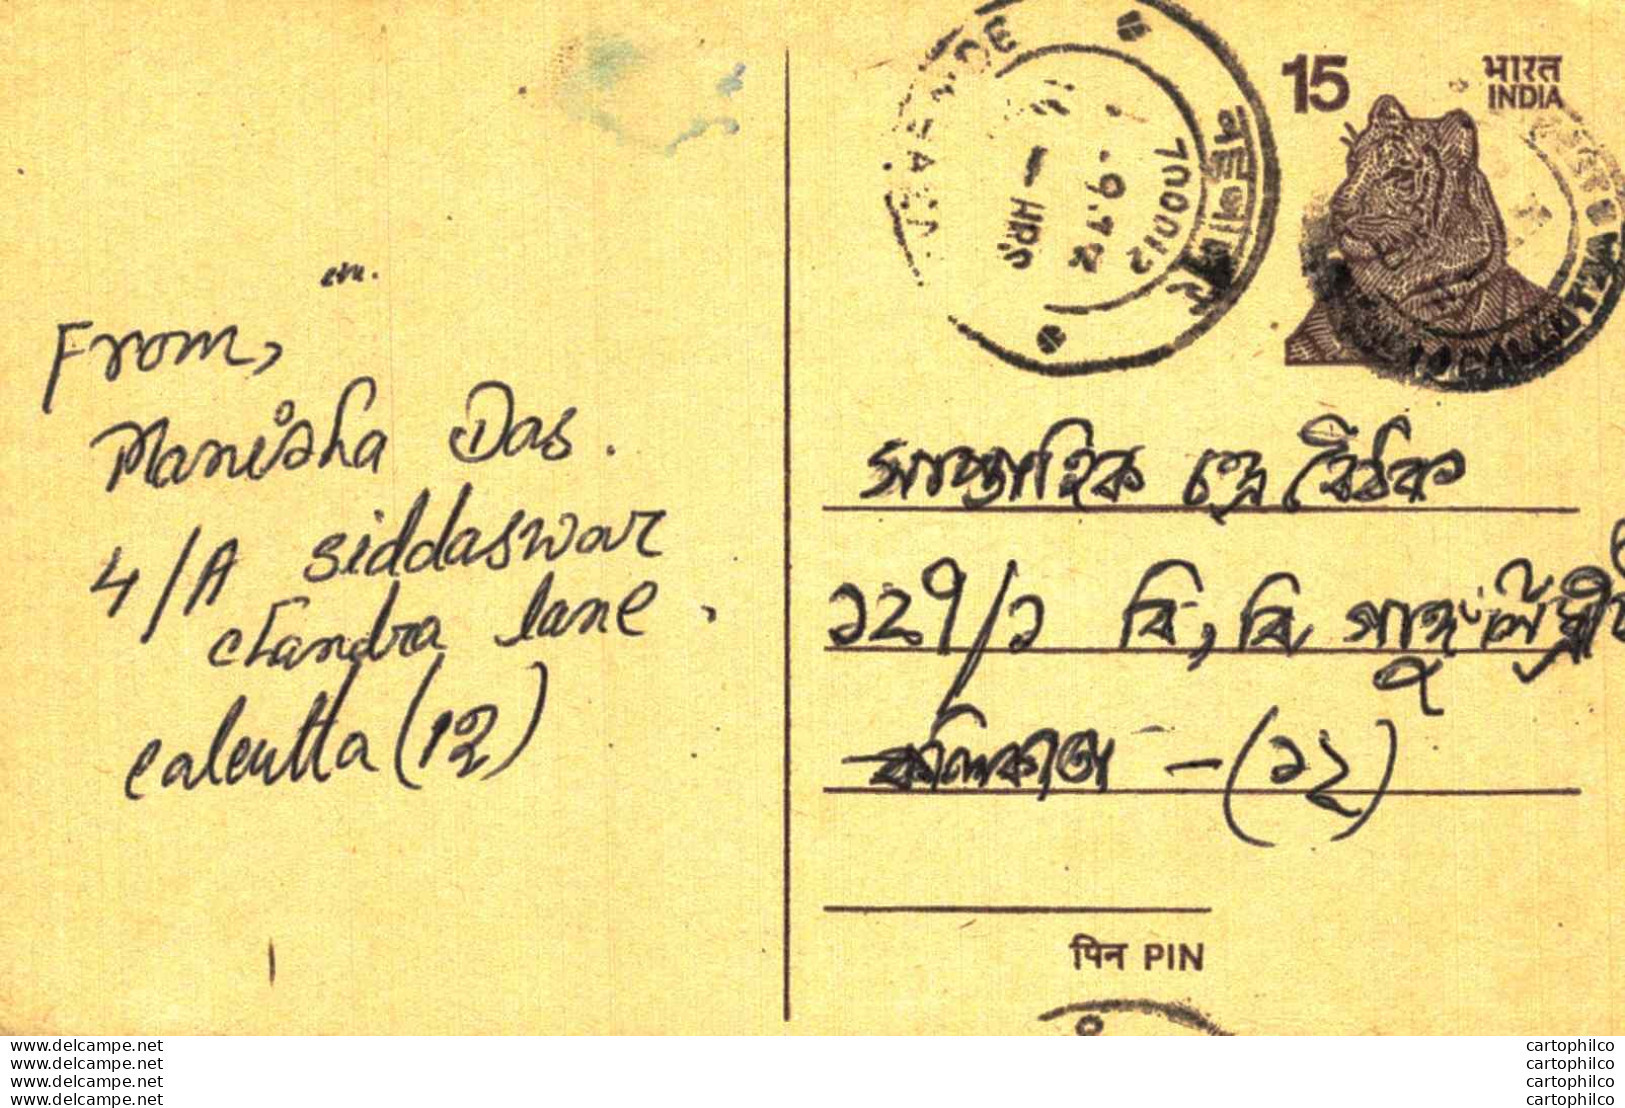 em.
From,
Manisha Das.
4/A Siddaswar
Chandra lane,
Calcutta (12)
700012
HRS
15
भारत
INDIA
CALCUTTA
সাপ্তাহিক চন্দ্র বৈঠক
১২৭/১ বি, বি, গাঙ্গুলি স্ট্রীট
কলিকাতা - (১২)
पिन PIN
www.delcampe.net
www.delcampe.net
www.delcampe.net
www.delcampe.net
cartophilco
cartophilco
cartophilco
cartophilco